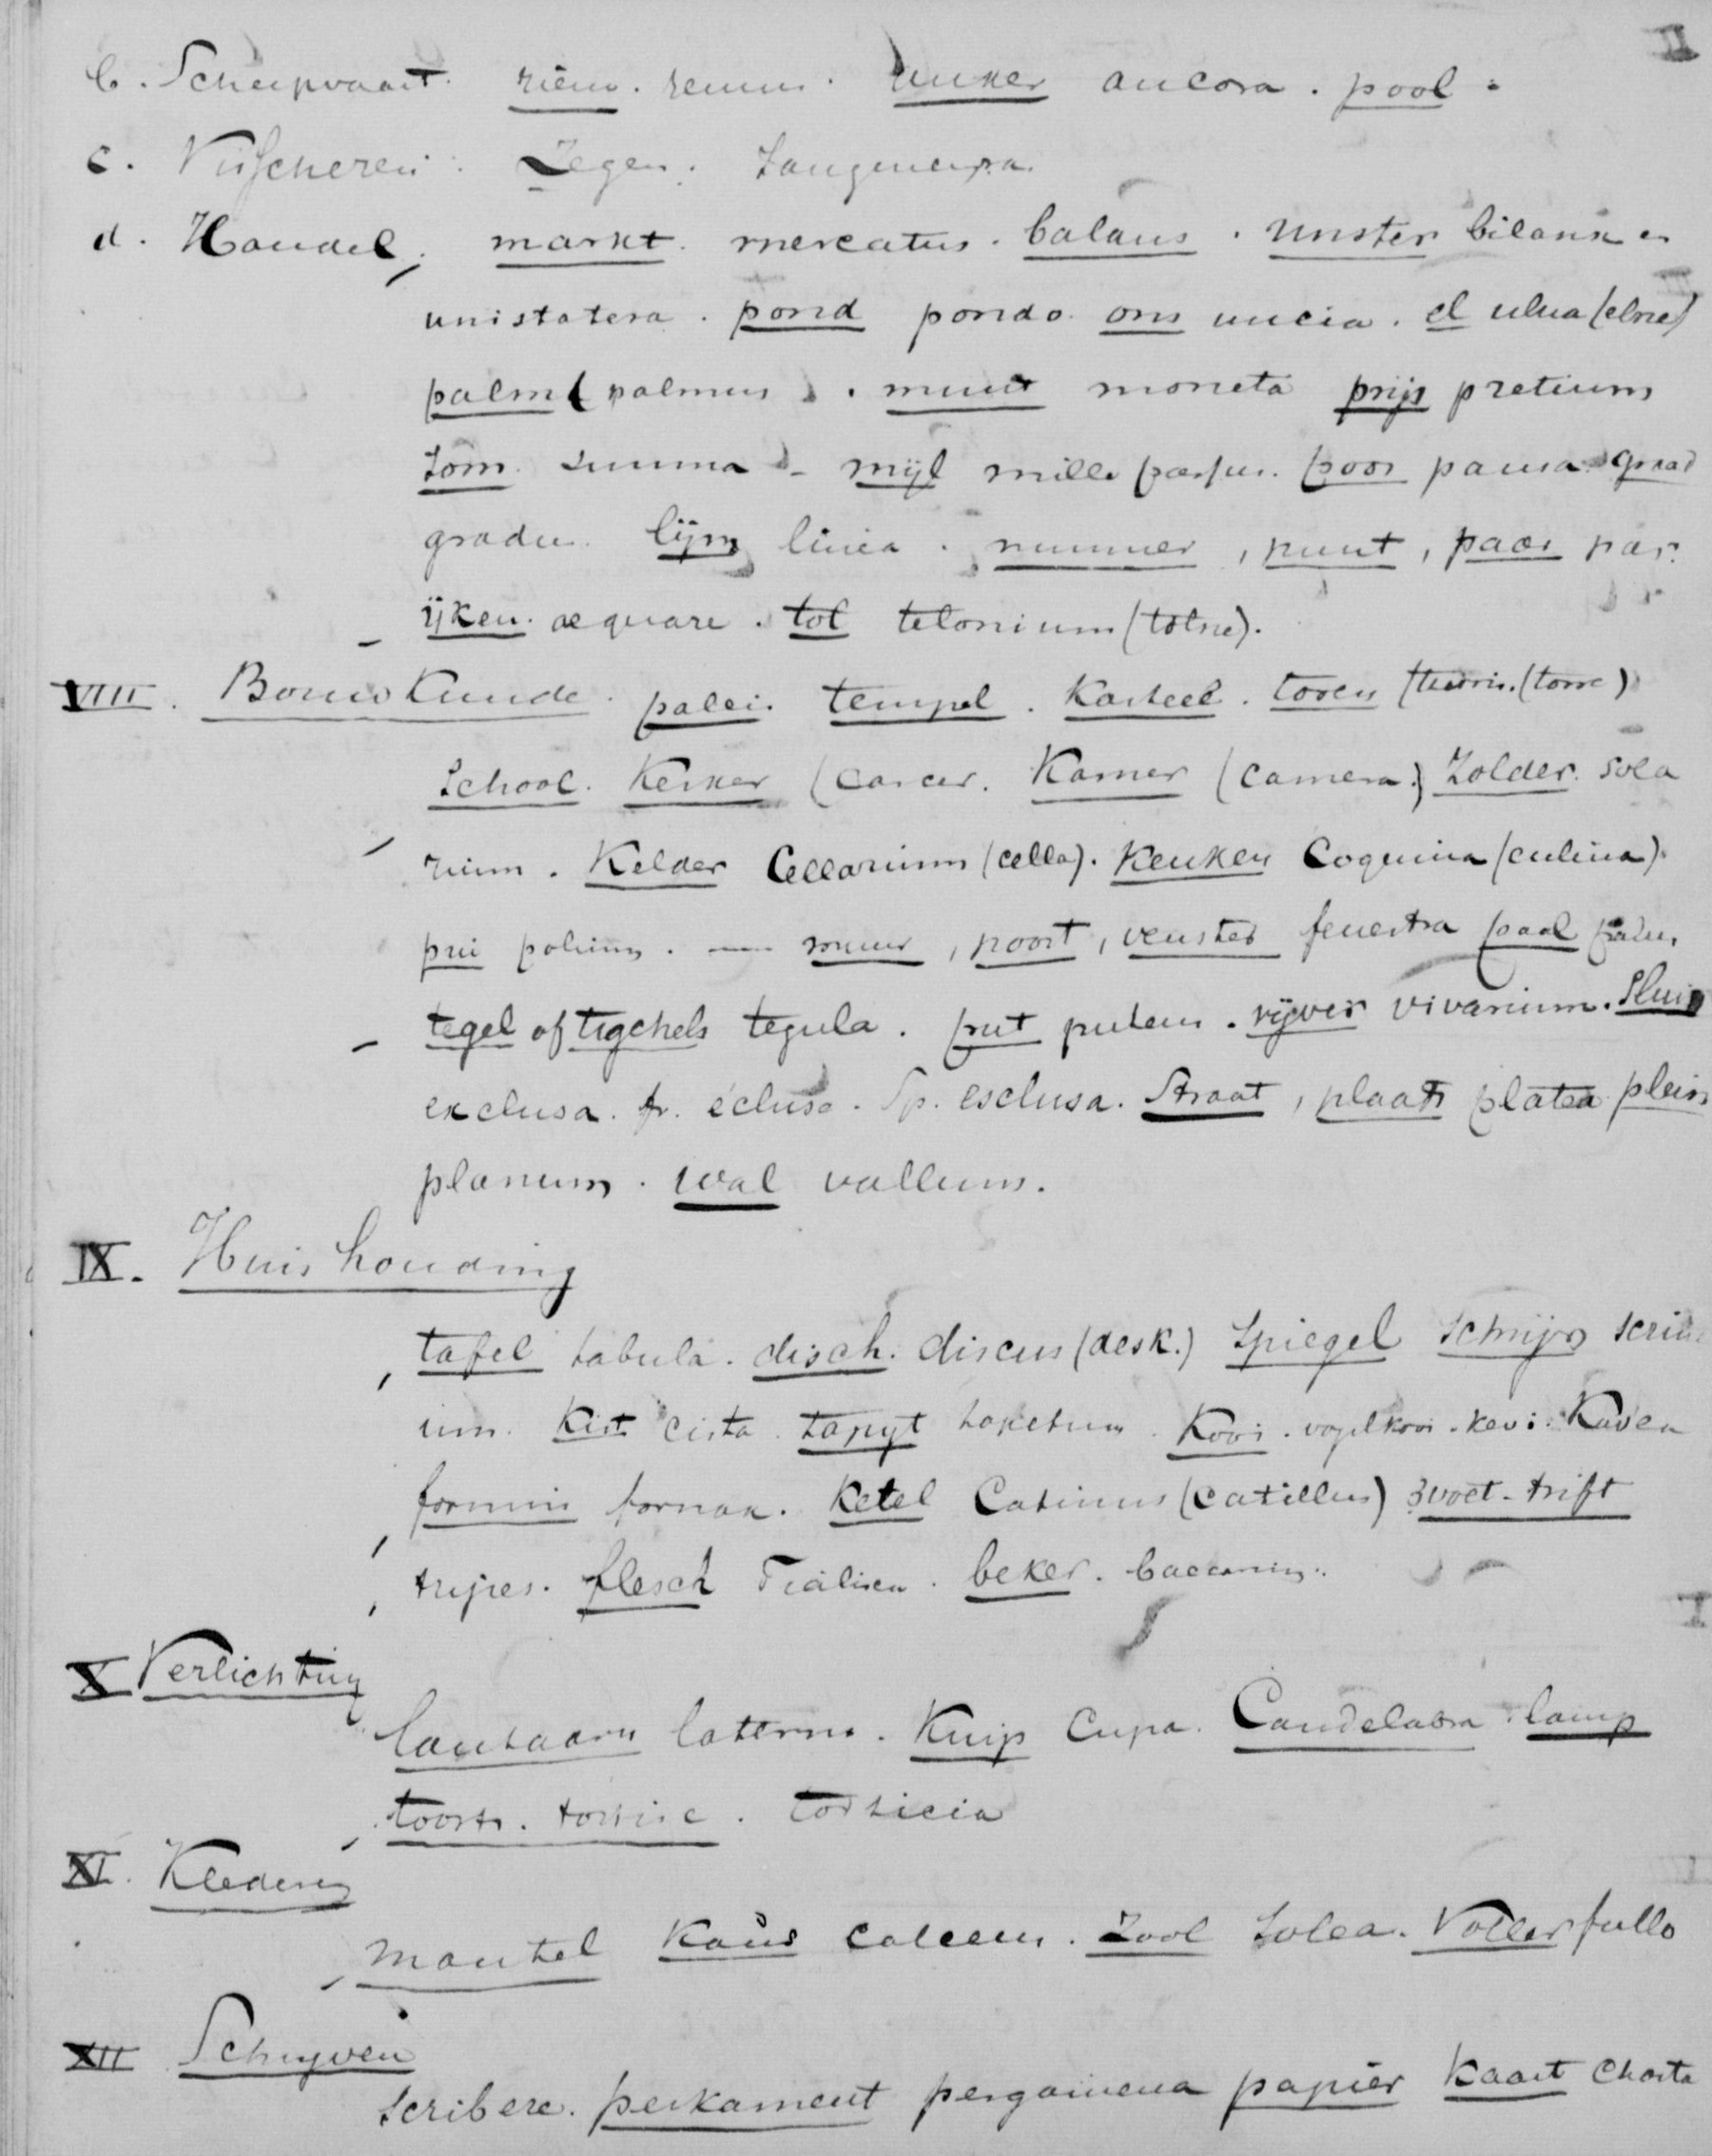 II
b. Scheepvaart. riem. remus. anker ancora. pool.
c. Visscherei: Zegen.
d. Handel; markt. mercatus. balans. unster bilanx en
unistatera. pond pondo. ons uncia. el ulna (elne)
palm (palmus). munt moneta prijs pretium
som. summa - mijl mille passus. poos pausa. graad
gradu. lijn linea. nummer, punt, paar par.
ijken. aequare. tol telonium (tolne).
VIII. Bouwkunde. paleis tempel. Kasteel. toren (turris. (torre)
School. Kerker (carcer. Kamer (camera.) Zolder. sola
rium. Kelder Cellarium (cella). Keuken Coquina (culina).
pui podium. — muur, poort, venster fenestra paal palus
tegel of tigchels tegula. put puteus. vijver vivarium. Sluis
exclusa. fr. écluse. Sp. esclusa. Straat, plaats platea plein
planum. wal vallum.
IX. Huishouding
tafel tabula. disch. discus (desk.) Spiegel Schrijn scrin
ium. Kist cista. tapyt tapetum. Kooi. vogelkooi. kevi. Kavea
fornuis fornax. Ketel Catinus (catillus) 3voet - trift
tripes. flesch beker. baccarium.
X Verlichting
lantaarn laterna. Kuip Cupa. Candelabra. lamp
toorts. tortise. torticia
XI. Kledering
mantel Kous calceus. Zool Solea. Voller fullo
XII Schryven
scribere. perkament pergamena papier Kaart Charta